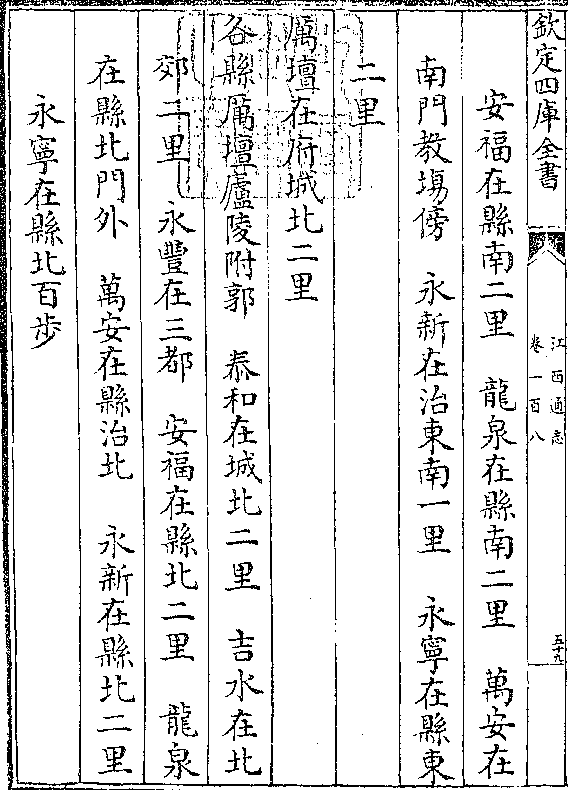 欽定四庫全書
江西通志
卷一百八
五十九
安福在縣南二里　龍泉在縣南二里　萬安在
南門教塲傍　永新在治東南一里　永寧在縣東
二里
厲壇在府城北二里
各縣厲壇廬陵附郭　泰和在城北二里　吉水在北
郊二里　永豐在三都　安福在縣北二里　龍泉
在縣北門外　萬安在縣治北　永新在縣北二里
永寧在縣北百步